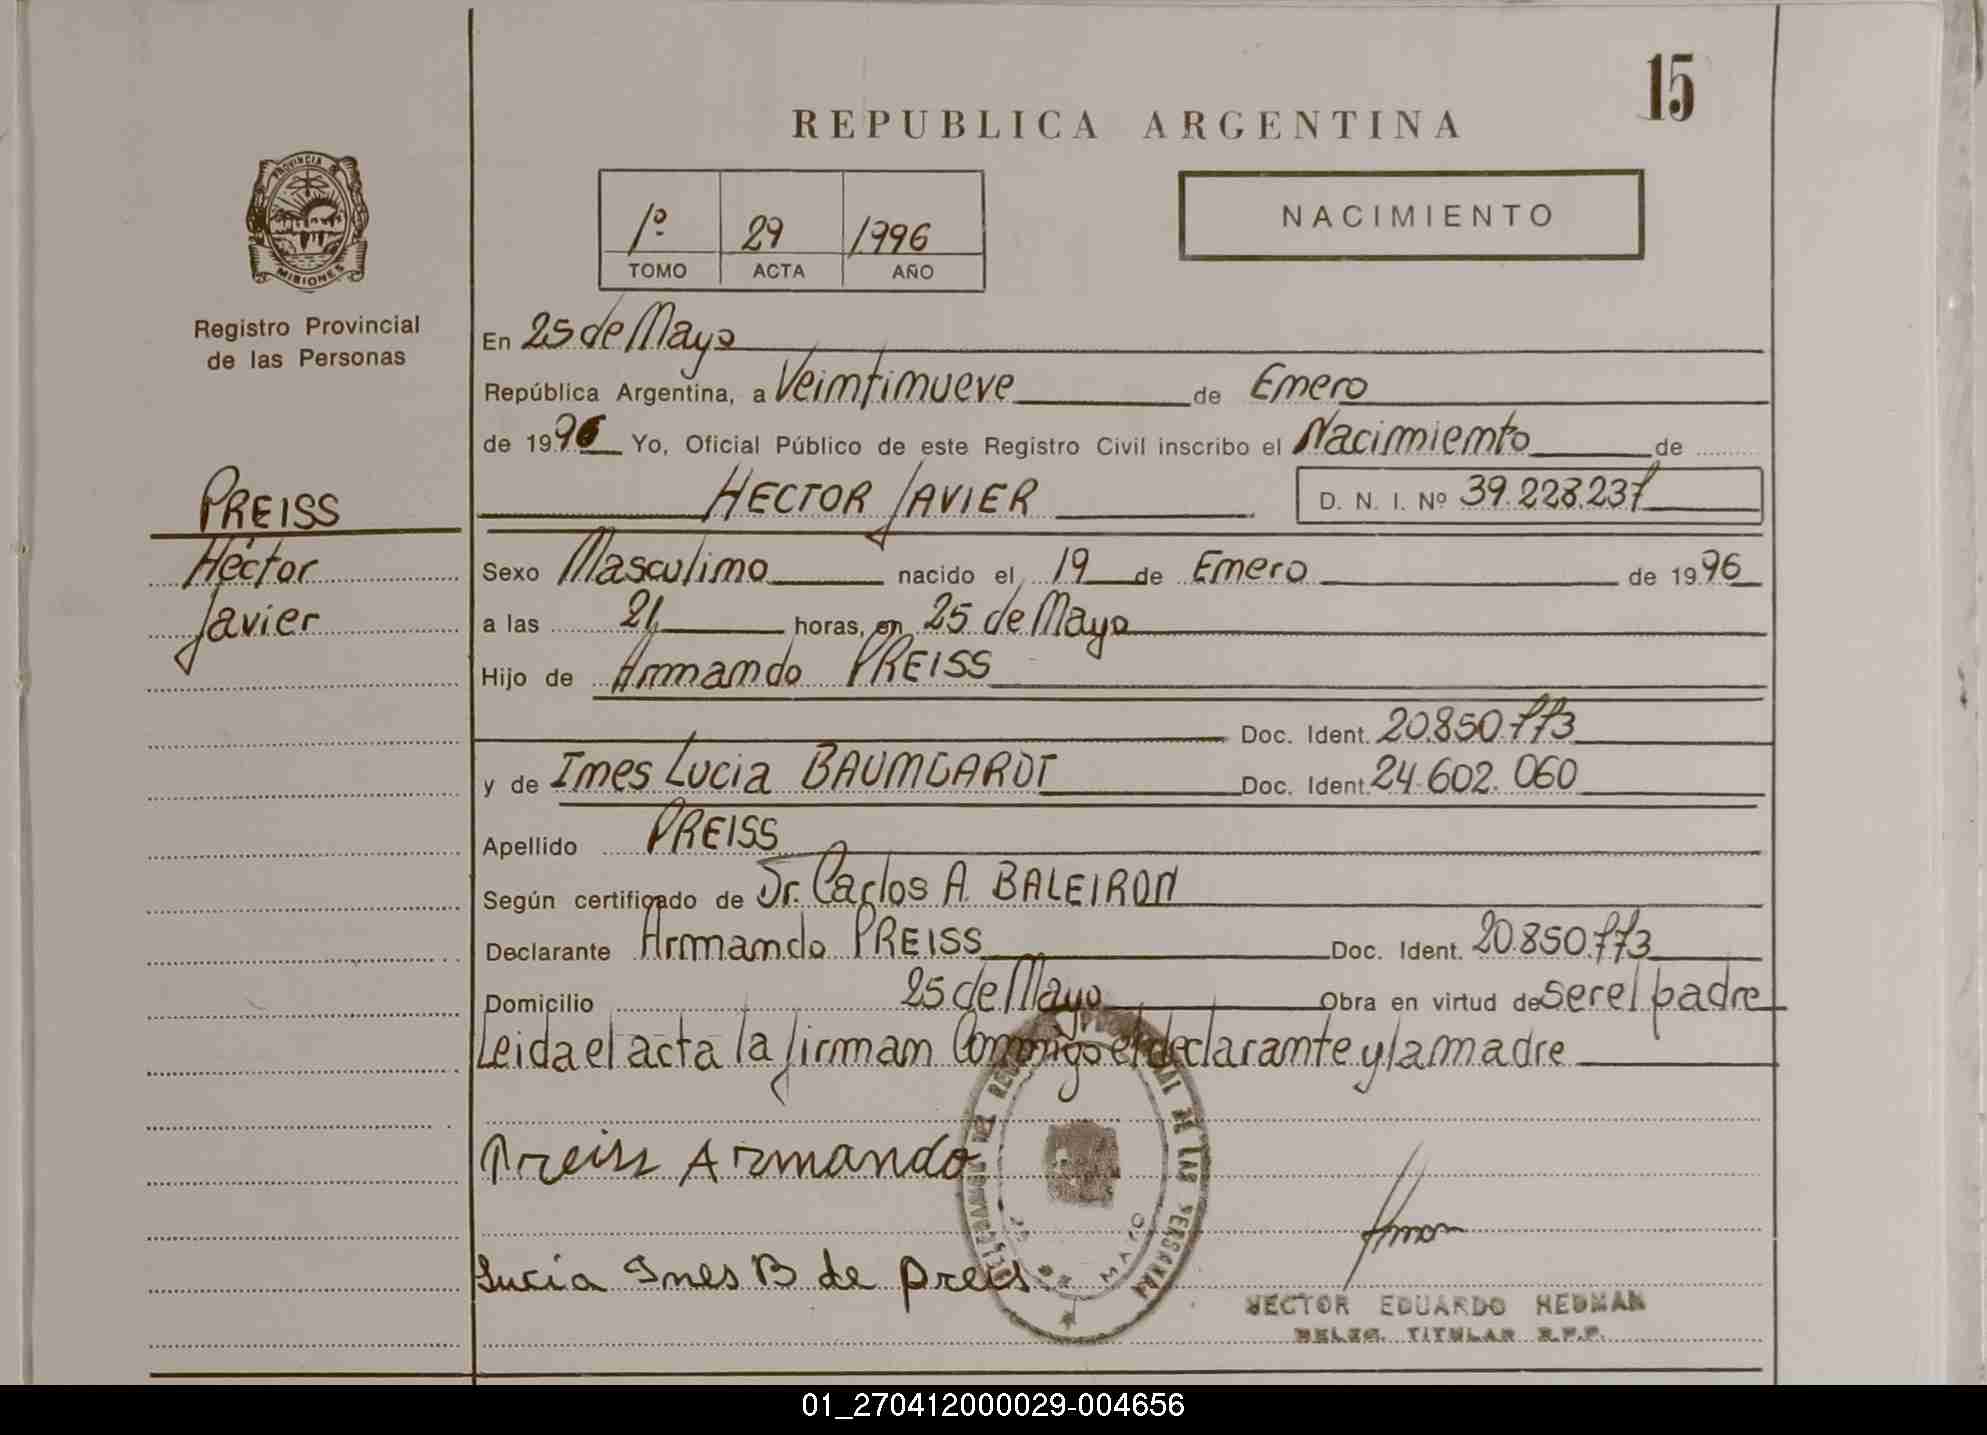 15
REPUBLICA ARGENTINA
PROVINCIA
MISIONES
1º 29 1996
TOMO ACTA AÑO
NACIMIENTO
Registro Provincial
de las Personas
En 25 de Mayo
República Argentina, a Veintinueve de Enero
de 1996 Yo, Oficial Público de este Registro Civil inscribo el Nacimiento de
HECTOR JAVIER D. N. I. Nº 39.228.237
PREISS
Héctor
Javier
Sexo Masculino nacido el 19 de Enero de 1996
a las 21 horas, en 25 de Mayo
Hijo de Armando PREISS
Doc. Ident. 20.850.773
y de Ines Lucia BAUMGARDT Doc. Ident. 24.602.060
Apellido PREISS
Según certificado de Dr. Carlos A. BALEIRON
Declarante Armando PREISS Doc. Ident. 20.850.773
Domicilio 25 de Mayo Obra en virtud de ser el padre
Leida el acta la firman Conmigo el declarante y la madre
Preiss Armando
Lucia Ines B de preis
DE LAS PERSONAS
25 DE MAYO
HECTOR EDUARDO HEDMAN
DELEG. TITULAR R.P.P.
01_270412000029-004656